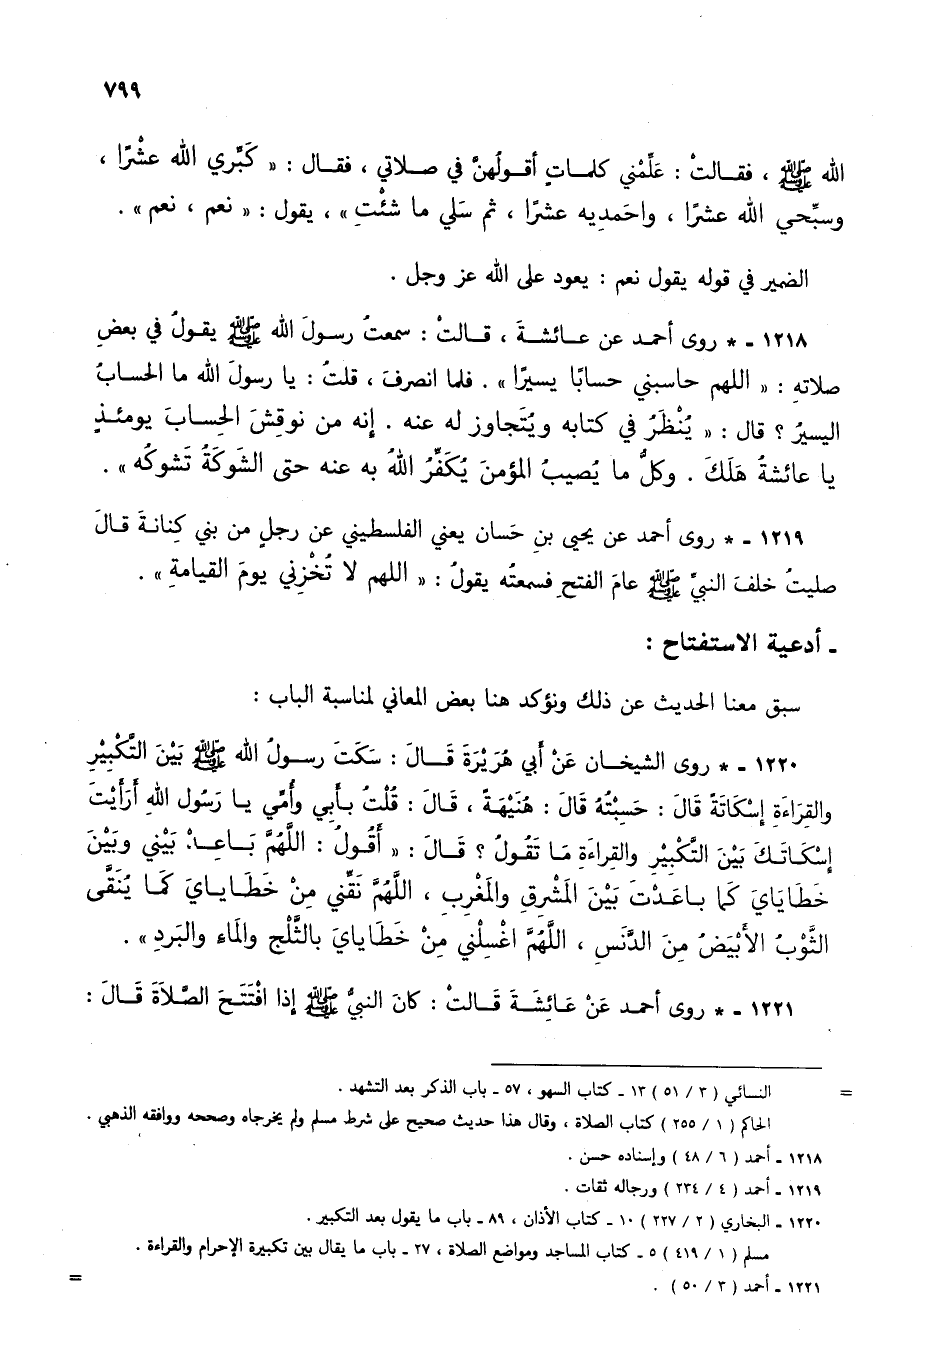 ٧٩٩
الله ﷺ ، فقـالتْ : عَلِّمْني كلمـاتٍ أقـولُهنَّ في صلاتي ، فقـال : « كَبِّري الله عشْرًا ،
وسبِّحي الله عشرًا ، واحَمديه عشرًا ، ثم سَلي ما شئْتِ » ، يقول : « نعم ، نعم » .
الضمير في قوله يقول نعم : يعود على الله عز وجل .
١٢١٨ ـ * روى أحمد عن عـائشةَ ، قـالتْ : سمعتُ رسولَ الله ﷺ يقـولُ في بعضِ
صلاتِه : « اللهم حاسبني حسابًا يسيرًا » . فلما انصرفَ ، قلتُ : يا رسولَ الله ما الحسابُ
اليسيرُ ؟ قال : « يُنْظَرُ في كتابه ويُتَجاوز له عنه . إنه من نوقِشَ الحِسابَ يومئـذٍ
يا عائشةُ هَلَكَ . وكلُّ ما يُصيبُ المؤمنَ يُكَفِّرُ اللهُ به عنه حتى الشَوكَةُ تَشوكُه » .
١٢١٩ ـ * روى أحمد عن يحيى بنِ حَسان يعني الفلسطيني عن رجلٍ من بني كِنانـةَ قـالَ
صليتُ خلفَ النبيِّ ﷺ عامَ الفتحِ فسمعتُه يقولُ : « اللهم لا تُخْزِني يومَ القيامةِ » .
ـ أدعية الاستفتاح :
سبق معنا الحديث عن ذلك ونؤكد هنا بعض المعاني لمناسبة الباب :
١٢٢٠ ـ * روى الشيخـان عَنْ أَبي هُرَيْرَةَ قَـالَ : سَكَتَ رسـولُ الله ﷺ بَيْنَ التَّكْبِيْرِ
والقِرَاءَةِ إسْكَاتَةً قَالَ : حَسِبْتُهُ قَالَ : هُنَيْهَةً ، قَالَ : قُلْتُ بـأبي وأُمِّي يـا رَسُولَ اللهِ أَرَأَيْتَ
إسْكَاتَـكَ بَيْنَ التَّكْبِيْرِ والقِراءَةِ مَا تَقُولُ ؟ قَـالَ : « أَقُـولُ : اللَّهُمَّ بَـاعِـدْ بَيْني وبَيْنَ
خَطَايَايَ كَما بـاعَـدْتَ بَيْنَ المَشْرِقِ والمَغْرِبِ ، اللَّهُمَّ نَقِّني مِنْ خَطَـايـايَ كَمَـا يُنَقَّى
الثَّوْبُ الأَبْيَضُ مِنَ الدَّنَسِ ، اللَّهُمَّ اغْسِلْني مِنْ خَطَايايَ بالثَّلْجِ والمَاءِ والبَرَدِ » .
١٢٢١ ـ * روى أحمد عَنْ عَـائِشَـةَ قَـالتْ : كانَ النبيُّ ﷺ إذا افْتَتَـحَ الصَّلاَةَ قَـالَ :
= النسائي ( ٣ / ٥١ ) ١٣ ـ كتاب السهو ، ٥٧ ـ باب الذكر بعد التشهد .
الحاكم ( ١ / ٢٥٥ ) كتاب الصلاة ، وقال هذا حديث صحيح على شرط مسلم ولم يخرجاه وصححه ووافقه الذهبي .
١٢١٨ ـ أحمد ( ٦ / ٤٨ ) وإسناده حسن .
١٢١٩ ـ أحمد ( ٤ / ٢٣٤ ) ورجاله ثقات .
١٢٢٠ ـ البخاري ( ٢ / ٢٢٧ ) ١٠ ـ كتاب الأذان ، ٨٩ ـ باب ما يقول بعد التكبير .
مسلم ( ١ / ٤١٩ ) ٥ ـ كتاب المساجد ومواضع الصلاة ، ٢٧ ـ باب ما يقال بين تكبيرة الإحرام والقراءة .
١٢٢١ ـ أحمد ( ٣ / ٥٠ ) . =